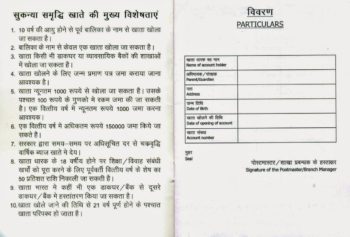 सुकन्या समृद्धि खाते की मुख्य विशेषताएं
1. 10 वर्ष की आयु होने से पूर्व बालिका के नाम से खाता खोला
जा सकता है।
2. बालिका के नाम से केवल एक खाता खोला जा सकता है।
3. खाता किसी भी डाकघर या व्यावसायिक बैंकों की शाखाओं
में खोला जा सकता है।
4. खाता खोलने के लिए जन्म प्रमाण पत्र जमा कराया जाना
आवश्यक है।
5. खाता न्यूनतम 1000 रूपये से खोला जा सकता है। उसके
पश्चात 100 रूपये के गुणकों मे रकम जमा की जा सकती
है। एक वित्तीय वर्ष में न्यूनतम 1000 जमा करना
आवश्यक।
6. एक वित्तीय वर्ष मे अधिकतम रूपये 150000 जमा किये जा
सकते है।
7. सरकार द्वारा समय-समय पर अधिसूचित दर से चक्रवृद्धि
वार्षिक ब्याज खाते मे देय।
8. खाता धारक के 18 वर्षीय होने पर शिक्षा/विवाह संबंधी
खर्चो को पूरा करने के लिए पूर्ववर्ती वित्तीय वर्ष के शेष का
50 प्रतिशत राशि निकाली जा सकती है।
9. खाता भारत मे कहीं भी एक डाकघर/बैंक से दूसरे
डाकघर/बैंक मे हस्तांतरण किया जा सकता है।
10. खाता खोले जाने की तिथि से 21 वर्ष पूर्ण होने के पश्चात
खाता परिपक्व हो जाता है।
विवरण
PARTICULARS
खाता धारक का नाम
Name of account holder
अभिभावक/संरक्षक
Parent/Guardian
पता
Address
जन्म तिथि
Date of Birth
खाता खोलने की तिथि
Date of opening of account
खाता संख्या
Account number
मुहर
Seal
पोस्टमास्टर/शाखा प्रबन्धक के हस्ताक्षर
Signature of the Postmaster/Branch Manager